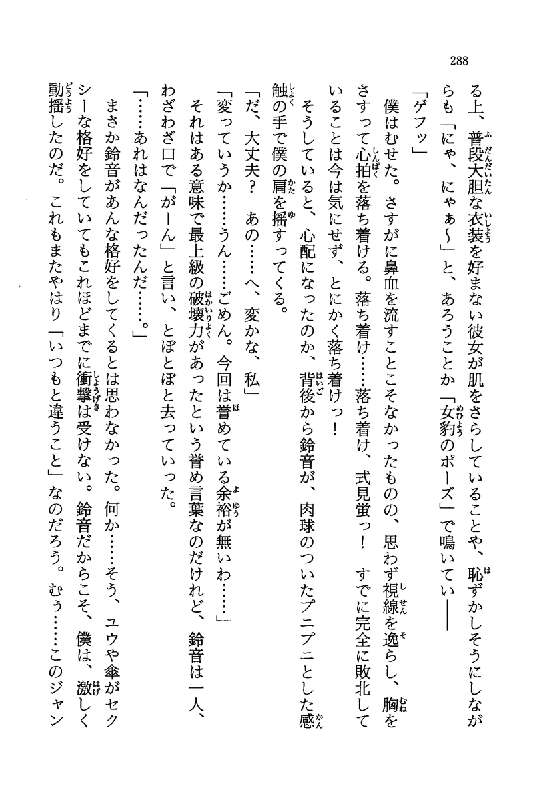 288
る上、普段大胆な衣装を好まない彼女が肌をさらしていることや、恥ずかしそうにしなが
らも「にゃ、にゃぁ～」と、あろうことか「女豹のポーズ」で鳴いてい――
「ゲフッ」
僕はむせた。さすがに鼻血を流すことこそなかったものの、思わず視線を逸らし、胸を
さすって心拍を落ち着ける。落ち着け……落ち着け、式見蛍っ！　すでに完全に敗北して
いることは今は気にせず、とにかく落ち着けっ！
そうしていると、心配になったのか、背後から鈴音が、肉球のついたプニプニとした感
触の手で僕の肩を揺すってくる。
「だ、大丈夫？　あの……へ、変かな、私」
「変っていうか……うん……ごめん。今回は誉めている余裕が無いわ……」
それはある意味で最上級の破壊力があったという誉め言葉なのだけれど、鈴音は一人、
わざわざ口で「がーん」と言い、とぼとぼと去っていった。
「……あれはなんだったんだ……。」
まさか鈴音があんな格好をしてくるとは思わなかった。何か……そう、ユウや傘がセク
シーな格好をしていてもこれほどまでに衝撃は受けない。鈴音だからこそ、僕は、激しく
動揺したのだ。これもまたやはり「いつもと違うこと」なのだろう。むぅ……このジャン